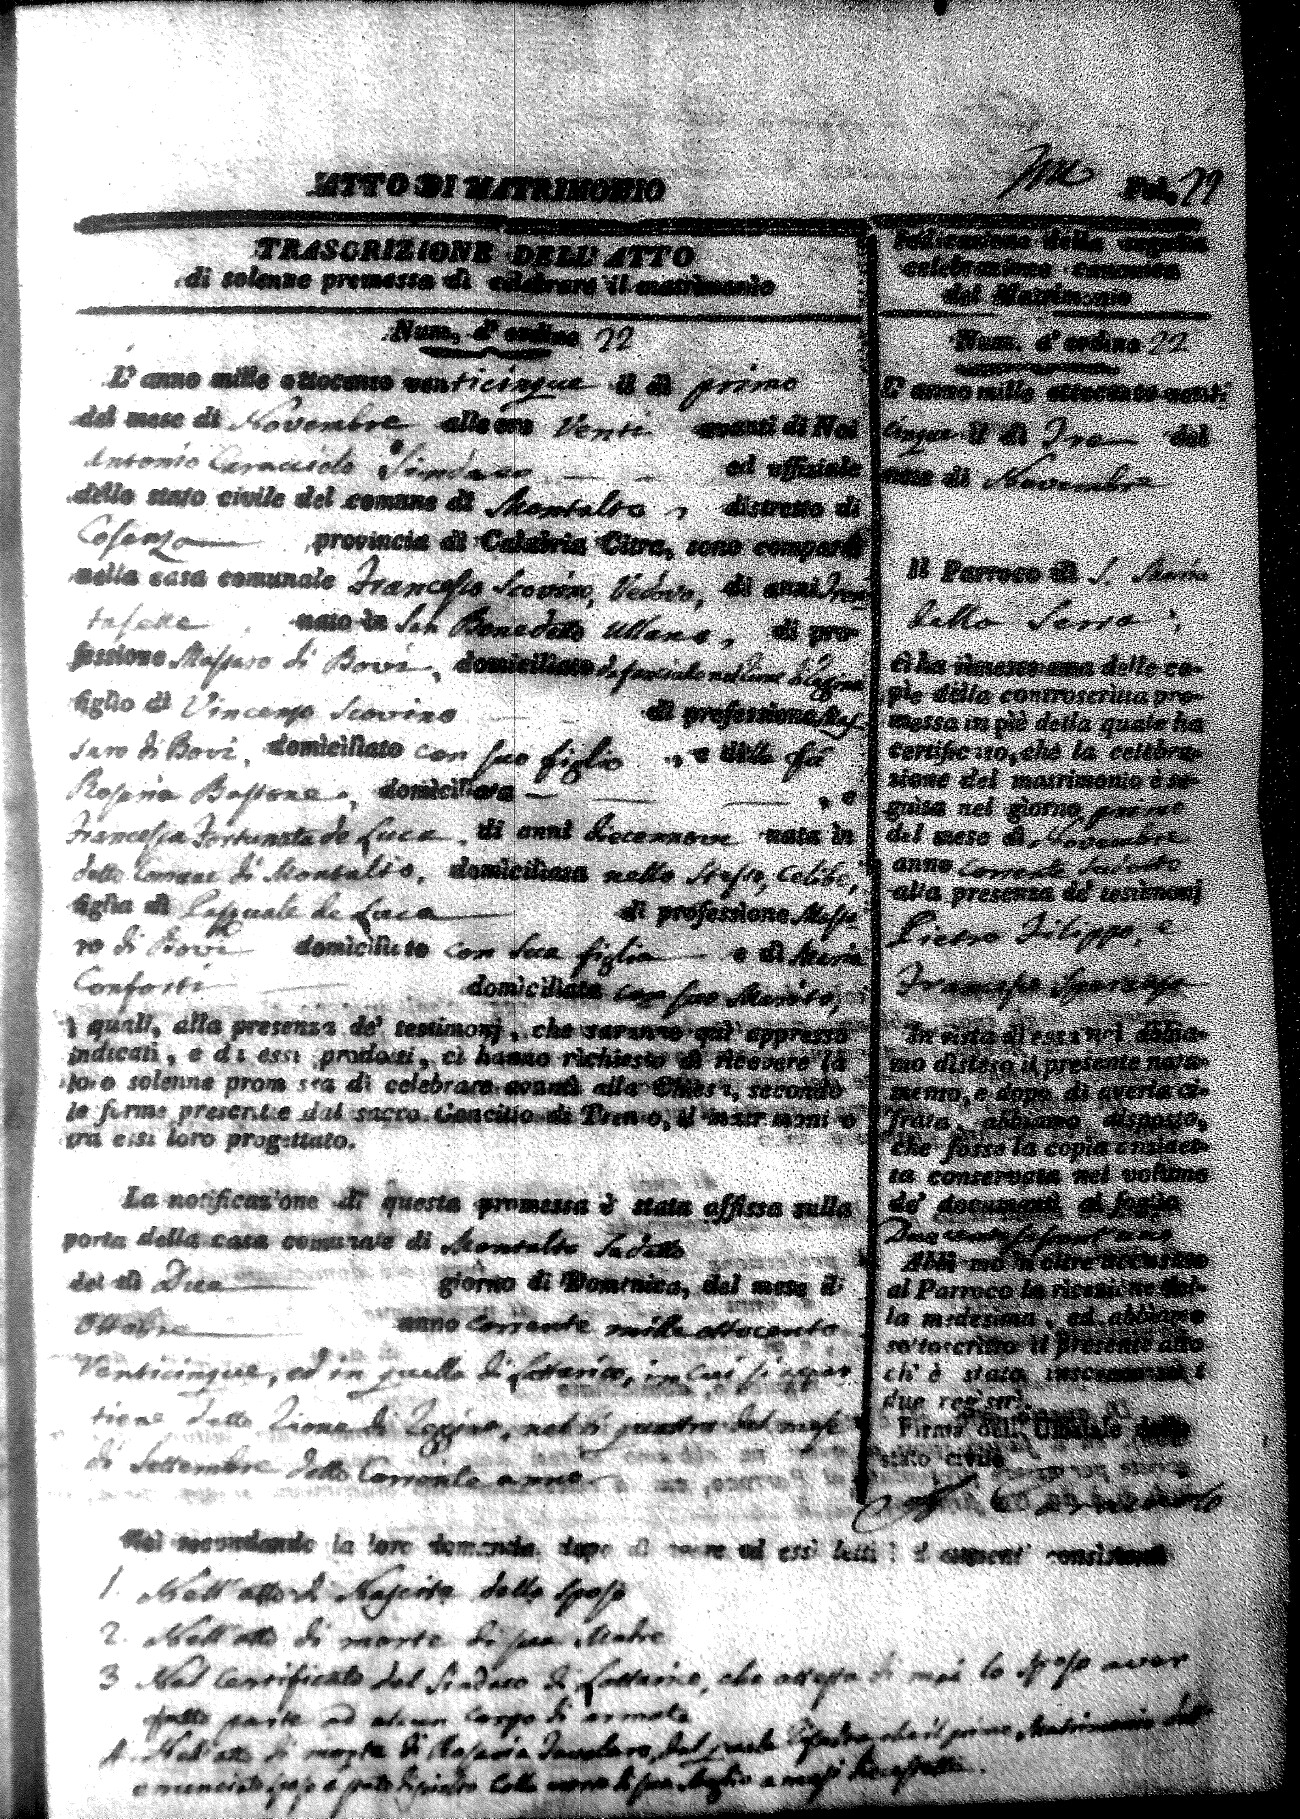 ATTO DI MATRIMONIO
Fol. 22
TRASCRIZIONE DELL' ATTO
di solenne promessa di celebrare il matrimonio
Num. d' ordine 22
L' anno mille ottocento venticinque il dì primo
del mese di Novembre alle ore Venti avanti di Noi
Antonio Caracciolo Sindaco ed uffiziale
dello stato civile del comune di Montalto, distretto di
Cosenza provincia di Calabria Citra, sono comparsi
nella casa comunale Francesco Scovino, Vedovo, di anni Tren
tasette, nato in San Benedetto Ullano, di pro-
fessione Massaro di Bovi, domiciliato
figlio di Vincenzo Scovino di professione Mas-
saro di Bovi, domiciliato con suo figlio, e della fù
Rosaria Bassone, domiciliata , e
Francesca Fortunata de Luca, di anni diecennove nata in
detto Comune di Montalto, domiciliata nello Stesso, Celibe,
figlia di Pasquale de Luca di professione Massa
ro di Bovi domiciliato con sua figlia e di Maria
Conforti domiciliata con suo Marito,
i quali, alla presenza de' testimonj, che saranno quì appresso
indicati, e di essi prodotti, ci hanno richiesto di ricevere la
loro solenne promessa di celebrare avanti alla Chiesa, secondo
le forme presentte dal sacro Concilio di Trento, il matrimonio
tra essi loro progettato.
La notificazione di questa promessa è stata affissa sulla
porta della casa comunale di Montalto sudetto
del dì Due giorno di Domenica, del mese di
Ottobre anno corrente mille ottocento
Venticinque, ed in quella di Lattarico, in cui si appar
tiene detto nel dì quattro del mese
di Settembre detto Corrente anno
Noi secondando la loro domanda, dopo di avere ad essi letti i documenti consistenti
1. Nell' atto di Nascita dello sposo
2. Nell' atto di morte di sua Madre
3 Nel Certificato del Sindaco di Lattarico, che attesta di mai lo sposo aver
fatto parte ad alcun Corpo di armata
4. Nell' atto di morte di Rosaria
Indicazione della seguita
celebrazione canonica
del Matrimonio
Num. d' ordine 22
L' anno mille ottocento venti
cinque il dì Tre del
mese di Novembre
Il Parroco di S. Maria
della Serra,
ci ha rimessa una delle co-
pie della controscritta pro-
messa in piè della quale ha
certificato, che la celebra-
zione del matrimonio è se-
guita nel giorno primo
del mese di Novembre
anno corrente sudetto
alla presenza de' testimonj
Pietro Filippo, e
Francesco Speranza
In vista di essa noi abbia-
mo disteso il presente nota-
mento, e dopo di averla ci-
frata, abbiamo disposto,
che fosse la copia anzidet-
ta conservata nel volume
de' documenti al foglio
Abbiamo inoltre accusato
al Parroco la ricezione del-
la medesima, ed abbiamo
sottoscritto il presente atto
ch' è stato inscritto su i
due registri.
Firma dell' Uffiziale dello
stato civile
Caracciolo